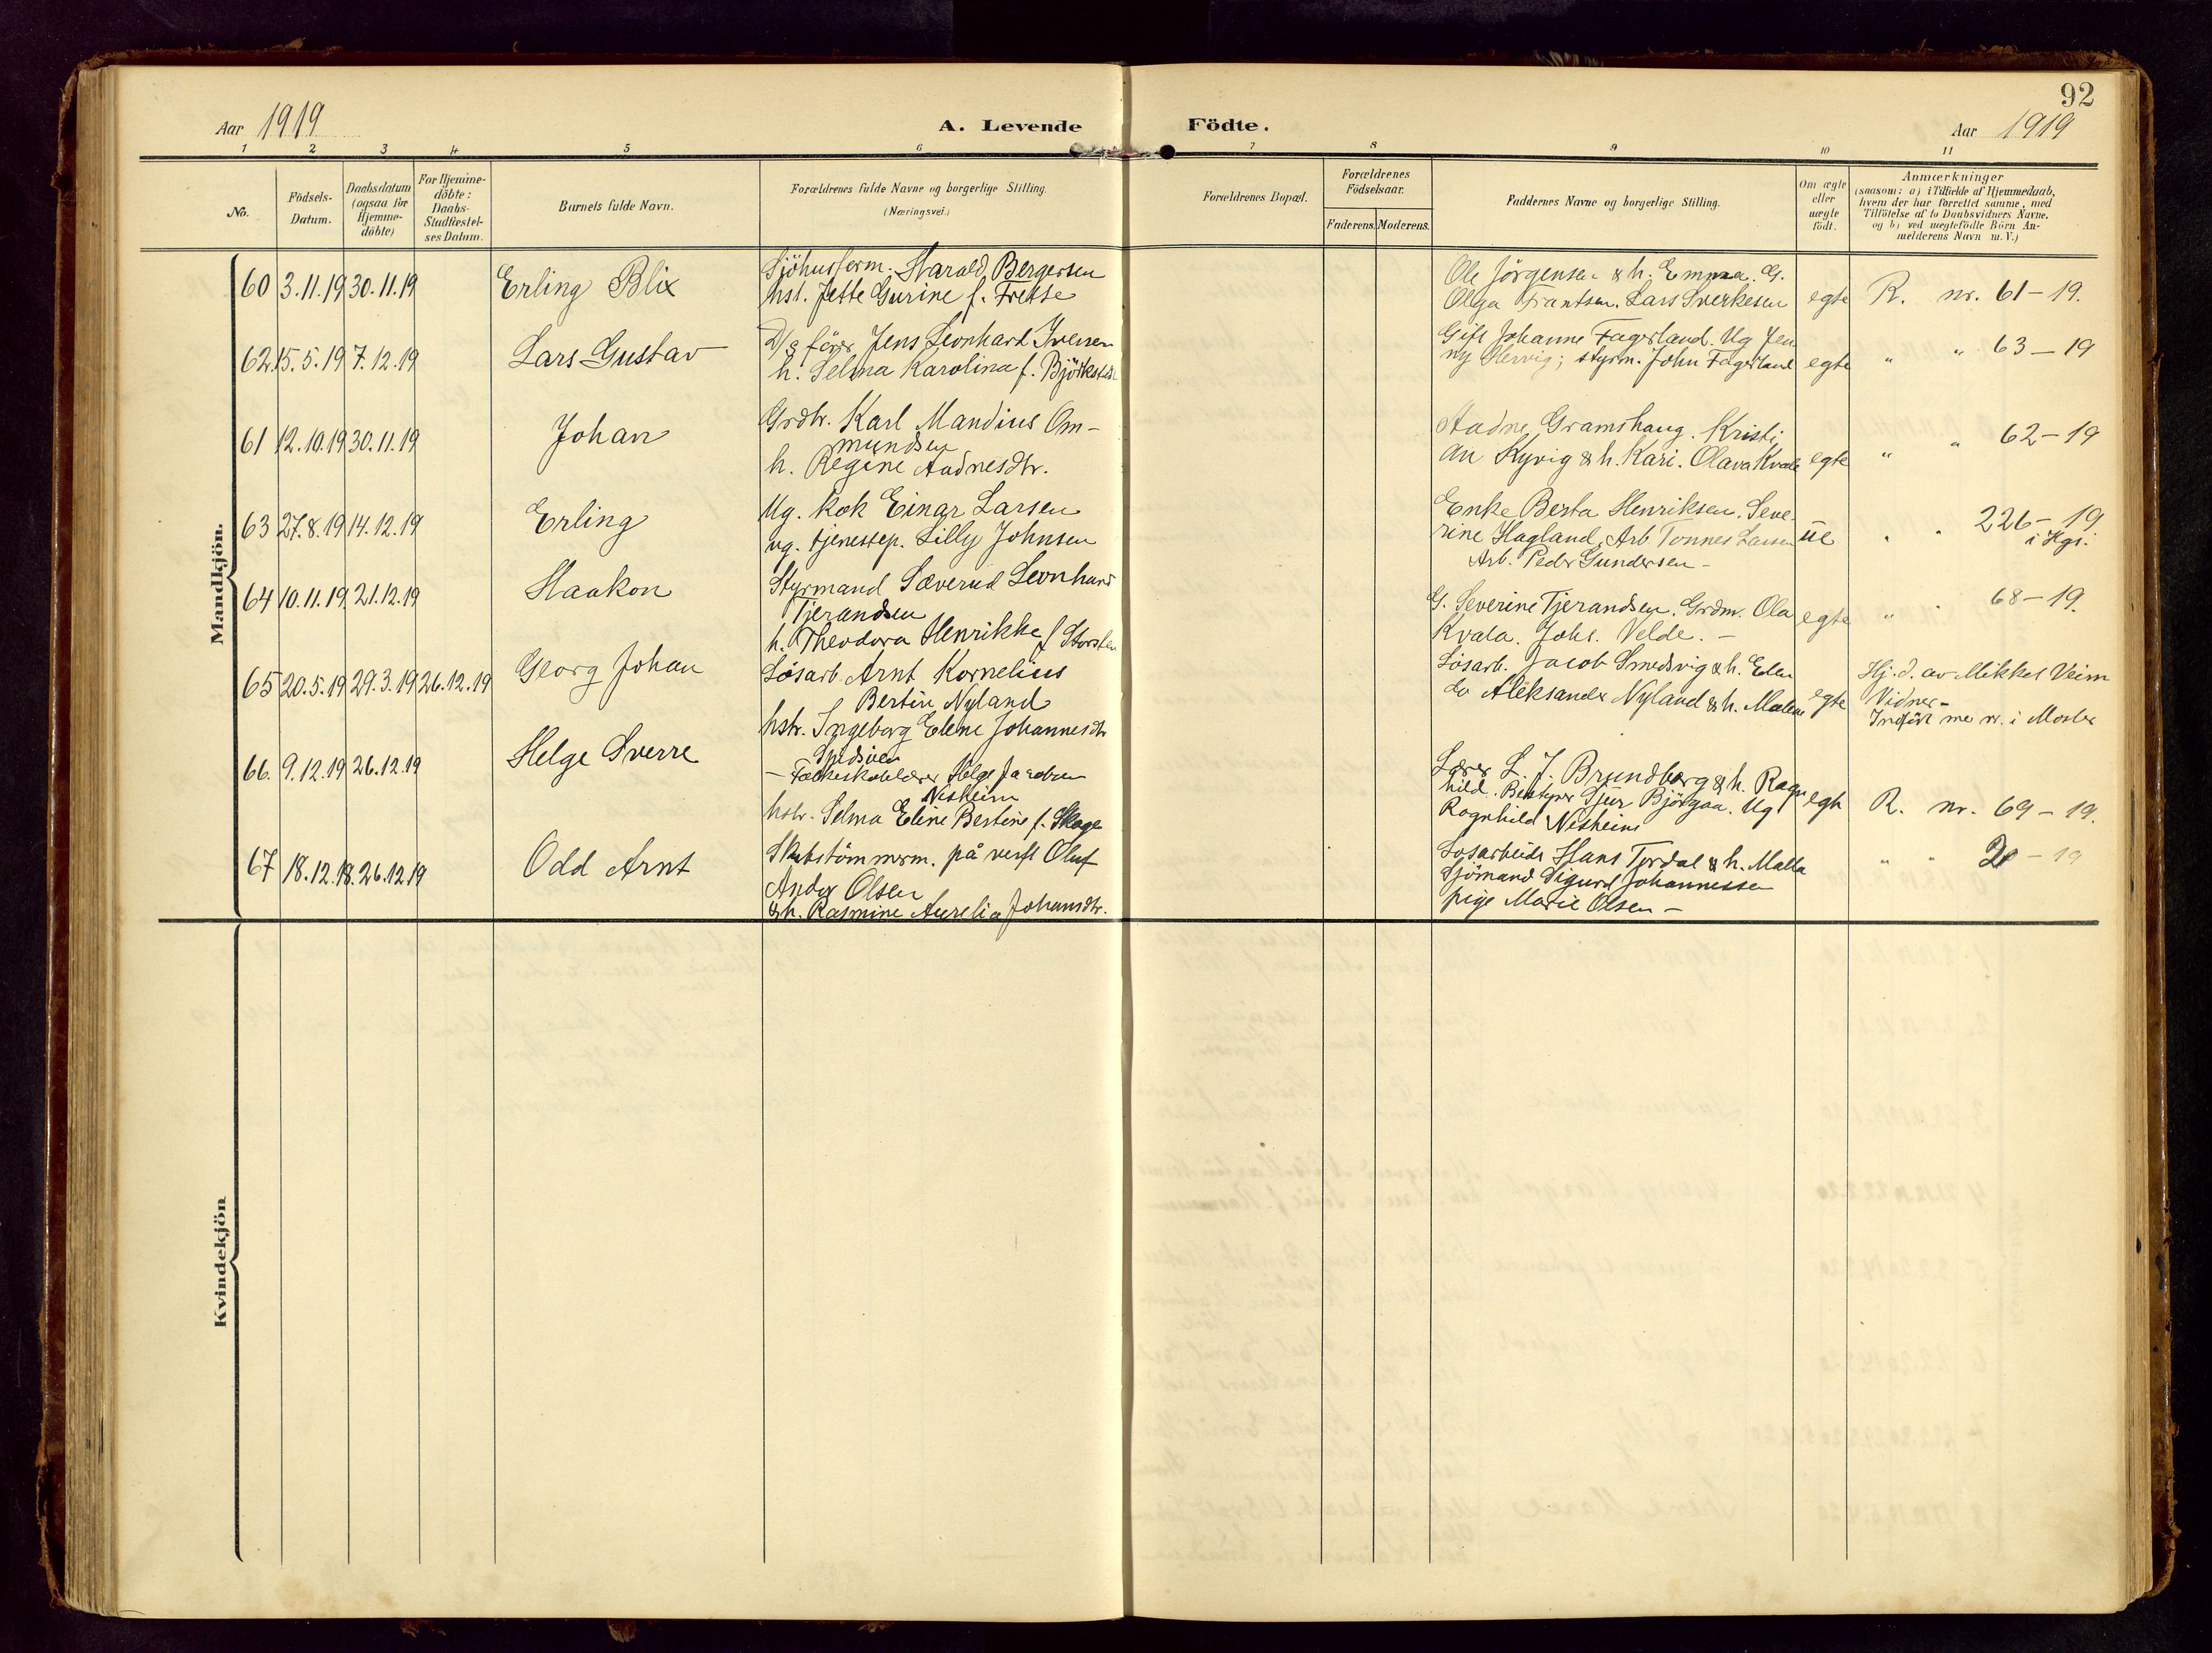 92
Aar 1919 A. Levende Födte. Aar 1919
1 2 3 4 5 6 7 8 9 10 11
No.
Födsels-
Datum.
Daabsdatum
(ogsaa for
Hjemme-
döbte)
For Hjemme-
döbte:
Daabs-
Stadfæstel-
ses Datum.
Barnets fulde Navn.
Forældrenes fulde Navne og borgerlige Stilling.
(Næringsvei.)
Forældrenes Bopæl.
Forældrenes
Födselsaar.
Faderens. Moderens.
Faddernes Navne og borgerlige Stilling.
Om ægte
eller
uægte
födt.
Anmærkninger
(saasom: a) i Tilfælde af Hjemmedaab,
hvem der har forrettet samme, med
Tilföielse af to Daabsvidners Navne.
og b) ved uægtefödte Börn An-
melderens Navn m. V.)
Mandkjön.
60 3.11.19 30.11.19 Erling Blix
Sjöhusform. Harald Bergersen
hst. Jette Gurine f. Frette
Ole Jörgensen & h. Emma. G.
Olga Frantsen. Lars Sverkesen
egte R. nr. 61-19.
62 15.5.19 7.12.19 Lars Gustav
D/s förer Jens Leonhard Iversen
h. Selma Karolina f.
Gift Johanne Fagerland. Ug Jen
ny Hervig; styrm. John Fagerland
egte " " 63-19
61 12.10.19 30.11.19 Johan
Grdbr. Karl Mandius Om-
mundsen
h. Regine Aadnesdtr.
Aadne Gramshaug. Kristi
an Kyvig & h. Kari. Olava Kvale
egte " " 62-19
63 27.8.19 14.12.19 Erling
Ug. kok Einar Larsen
ug. tjenestep. Lilly Johnsen
Enke Berta Henriksen. Seve
rine Hagland, Arb. Tonnes Larsen
Arb. Peder Gundersen -
ue " " 226-19
i Hgs.
64 10.11.19 21.12.19 Haakon
Styrmand Sæverud Leonhard
Tjerandsen
h. Theodora Henrikke f.
G. Severine Tjerandsen. Grdm. Ola
Kvala. Johs. Velde. -
egte " " 68-19.
65 20.5.19 29.3.19 26.12.19 Georg Johan
Lösarb. Arnt Kornelius
Bertin Nyland
hstr. Ingeborg Elene Johannesdtr
Lösarb. Jacob Smedsvig & h. Elen
Aleksander Nyland & h. Malene
egte
Hj. d. av Mikkel Veim
Vidner -
Indfört nr. i Moster
66. 9.12.19 26.12.19 Helge Sverre
- Folkeskolelærer Helge Jacobsen
Nesheim
hstr. Selma Eline Bertine f. Skoge
Lærer L. J. Brundborg & h. Ragn
hild. Sjur Björgaa. Ug
Ragnhild Nesheim
egte R. nr. 69-19.
67 18.12.18. 26.12.19 Odd Arnt
Skibstömmerm. på verft Oluf
Andor Olsen
& h. Rasmine Aurelia Johansdtr.
Losarbeider Hans Tordal & h. Malla
Sjömand Sigurd Johannessen
pige Marie Olsen -
" " 20-19
Kvindekjön